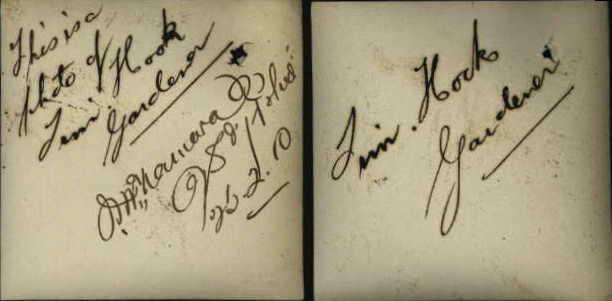 This is a
photo of
Jim. Hook
Gardener
J. McNamara
Sgt. Police
25.2.10
Jim. Hook
Gardener